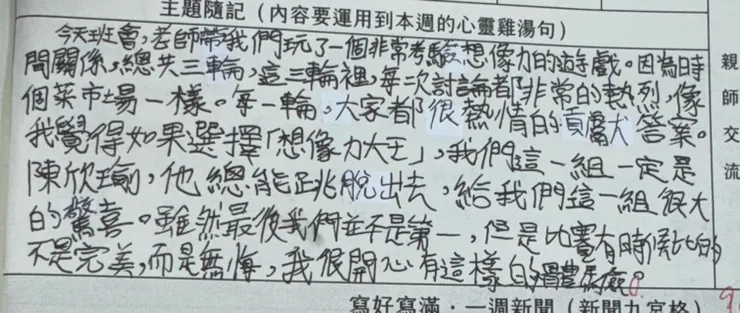 主題隨記（內容要運用到本週的心靈雞湯句）
今天班會，老師帶我們玩了一個非常考驗想像力的遊戲。因為時
間關係，總共三輪，這三輪裡，每次討論都非常的熱烈，像
個菜市場一樣。每一輪，大家都很熱情的貢獻答案。
我覺得如果選擇「想像力大王」，我們這一組一定是
陳欣瑜，他總能跳脫出去，給我們這一組很大
的驚喜。雖然最後我們並不是第一，但是比賽有時候比的
不是完美，而是無悔，我很開心有這樣的體驗。
親師交流
寫好寫滿．一週新聞（新聞九宮格）